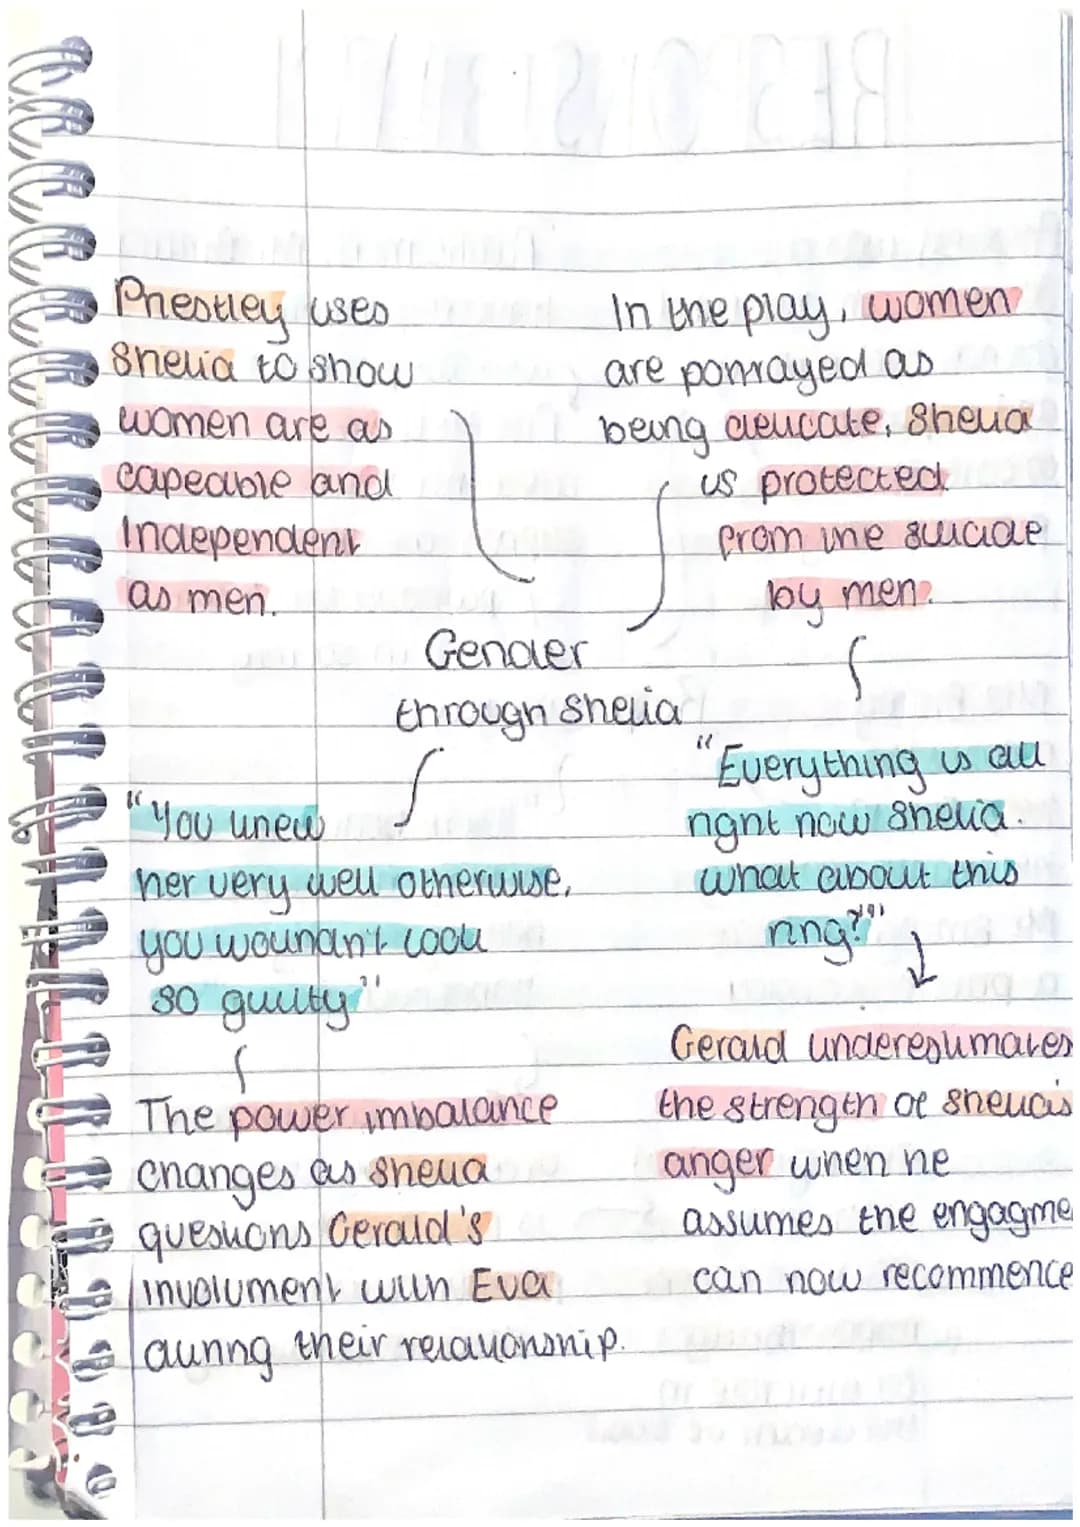 Priestley uses
Shelia to show
women are as
capeable and
Independent
as men.
In the play, women
are portrayed as
being delicate, Shelia
is protected
from the suicide
by men.
Gender
through Shelia
"You knew
her very well otherwise,
you wouldn't look
so guilty"
"Everything is all
right now Shelia.
what about this
ring?"
The power imbalance
changes as Shelia
questions Gerald's
involvment with Eva
during their relationship.
Gerald underestimates
the strength of Shelia's
anger when he
assumes the engagme
can now recommence